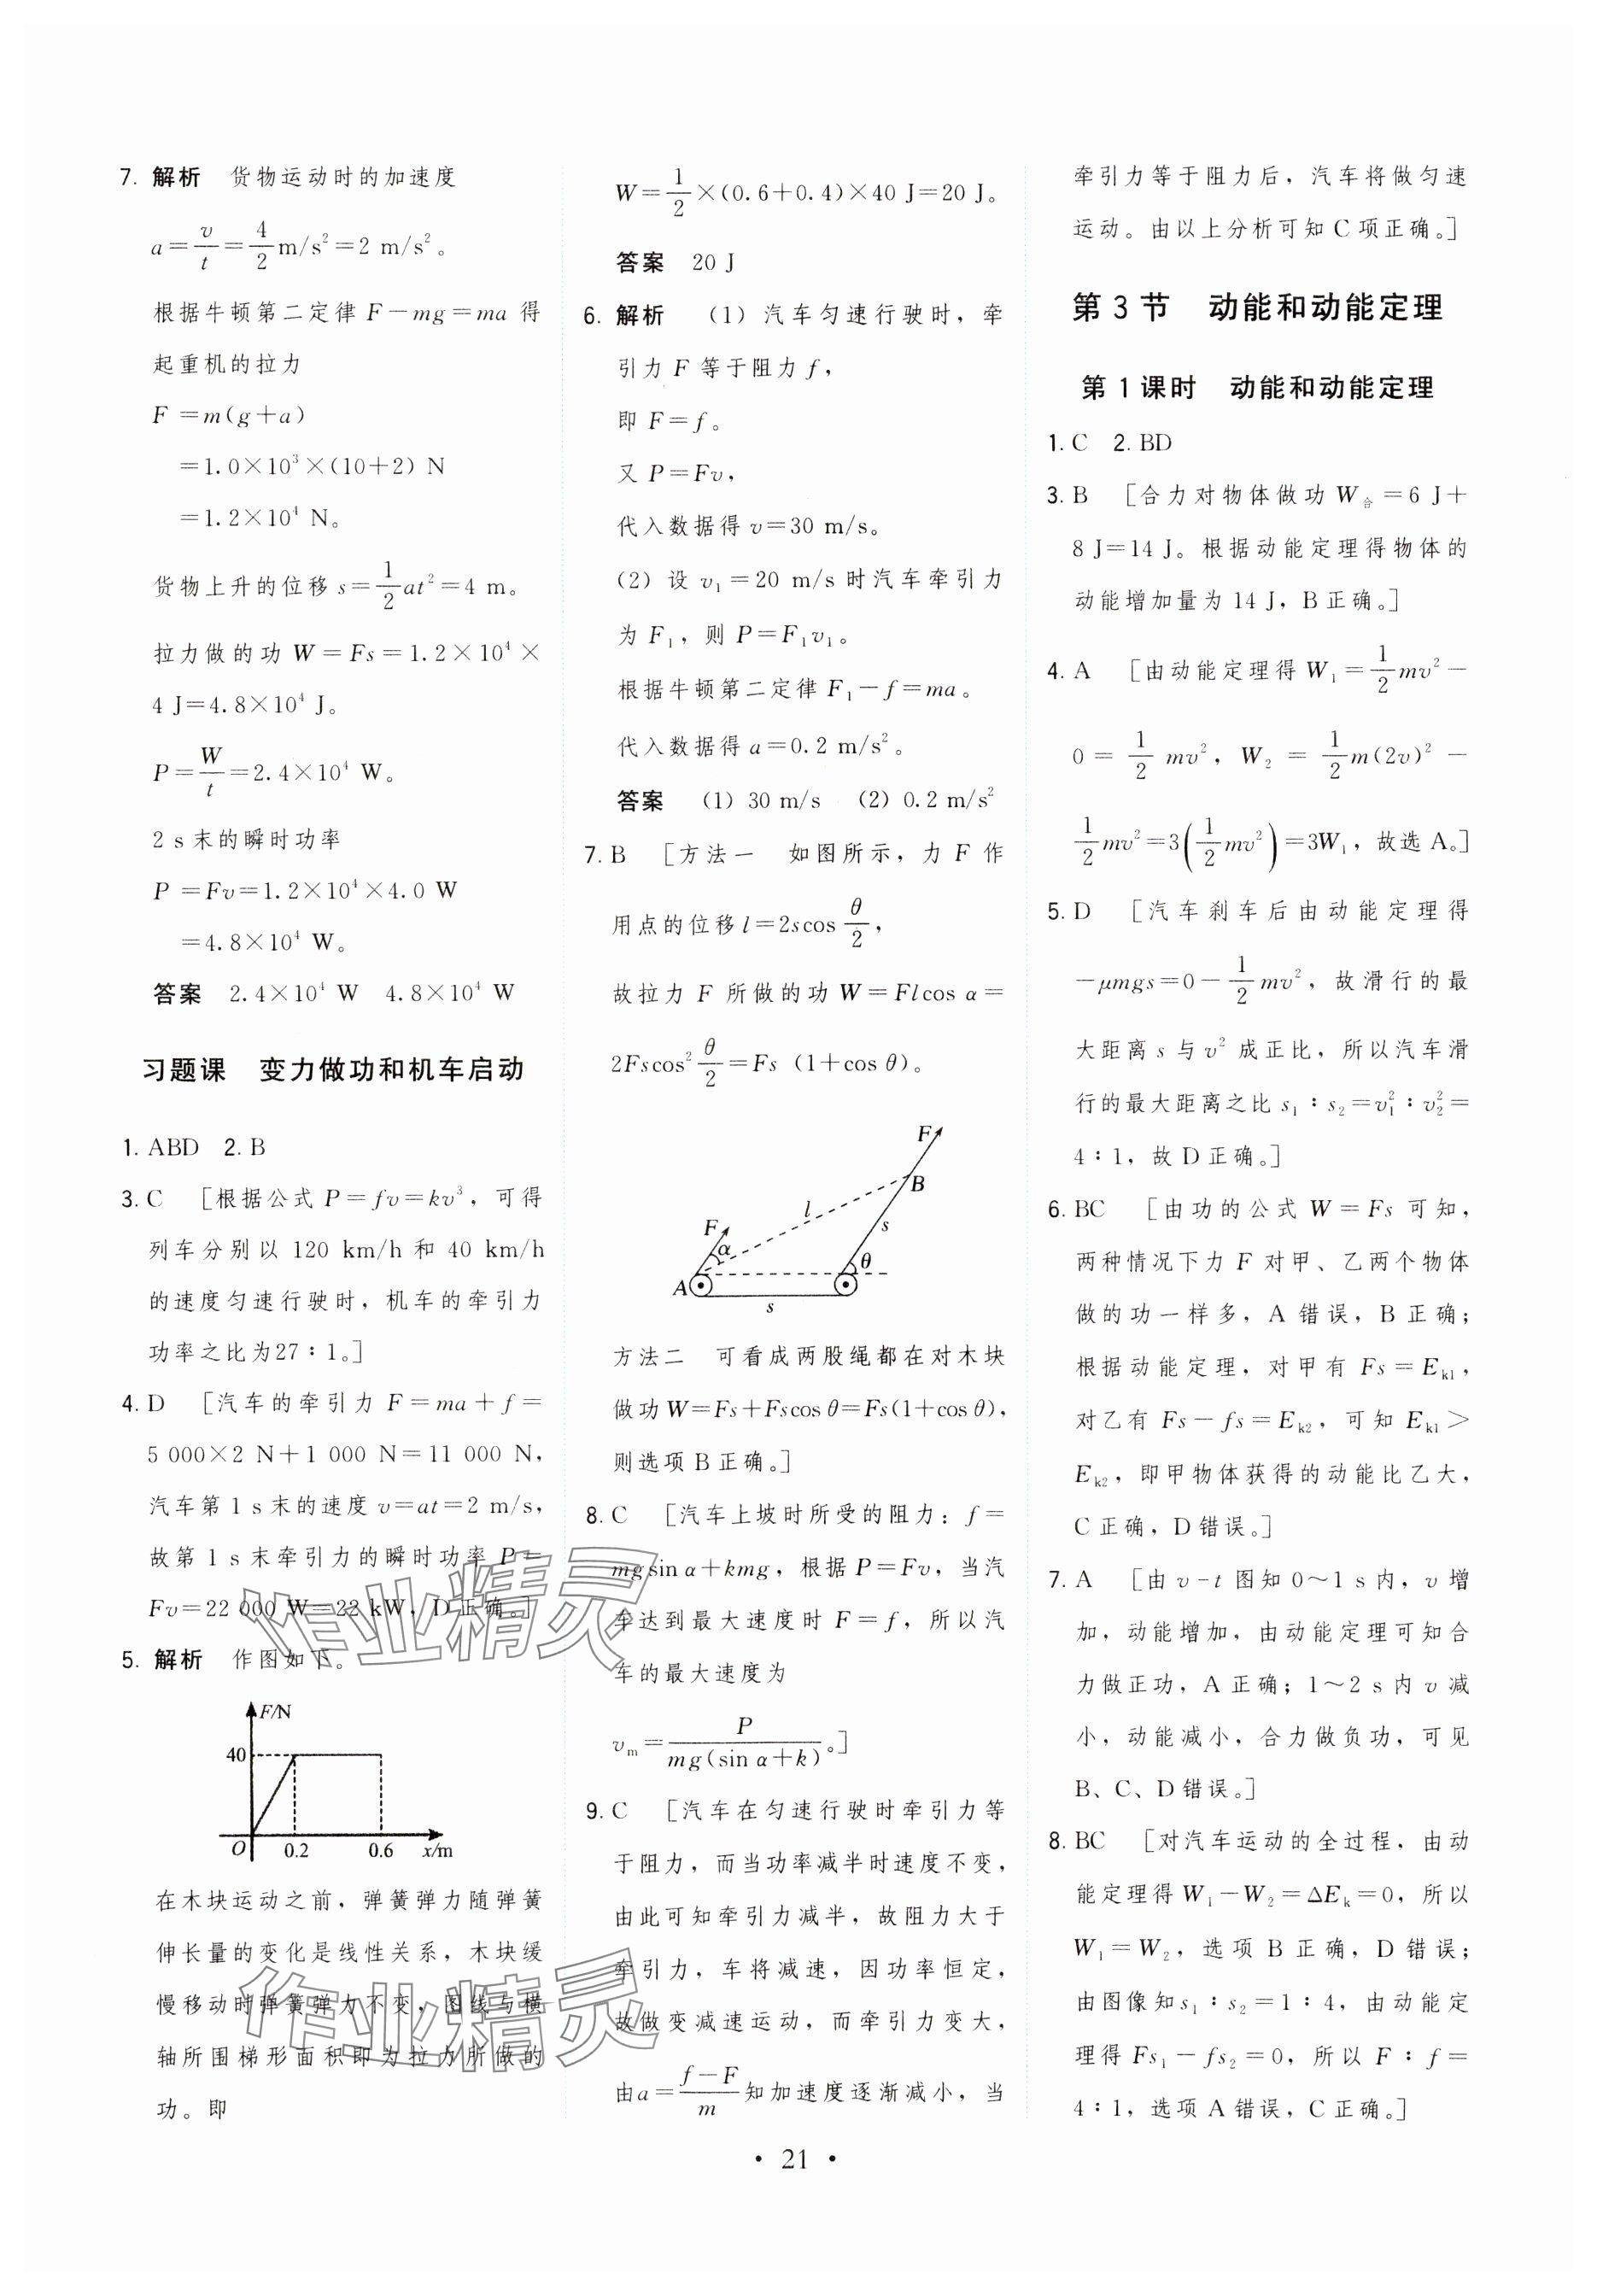 7. 解析 货物运动时的加速度
a=v/t=4/2 m/s²=2 m/s²。
根据牛顿第二定律 F-mg=ma 得
起重机的拉力
F =m(g+a)
=1.0×10³×(10+2) N
=1.2×10⁴ N。
货物上升的位移 s=1/2at²=4 m。
拉力做的功 W=Fs=1.2×10⁴×
4 J=4.8×10⁴ J。
P=W/t=2.4×10⁴ W。
2 s末的瞬时功率
P =Fv=1.2×10⁴×4.0 W
=4.8×10⁴ W。
答案 2.4×10⁴ W 4.8×10⁴ W
习题课 变力做功和机车启动
1. ABD 2. B
3. C [根据公式 P=fv=kv³，可得
列车分别以 120 km/h 和 40 km/h
的速度匀速行驶时，机车的牵引力
功率之比为27∶1。]
4. D [汽车的牵引力 F=ma+f=
5 000×2 N+1 000 N=11 000 N，
汽车第1 s末的速度 v=at=2 m/s，
故第 1 s 末牵引力的瞬时功率 P=
Fv=22 000 W=22 kW，D正确。]
5. 解析 作图如下。
F/N
40
O 0.2 0.6 x/m
在木块运动之前，弹簧弹力随弹簧
伸长量的变化是线性关系，木块缓
慢移动时弹簧弹力不变，图线与横
轴所围梯形面积即为拉力所做的
功。即
W=1/2×(0.6+0.4)×40 J=20 J。
答案 20 J
6. 解析 (1) 汽车匀速行驶时，牵
引力 F 等于阻力 f，
即 F=f。
又 P=Fv，
代入数据得 v=30 m/s。
(2) 设 v₁=20 m/s时汽车牵引力
为 F₁，则 P=F₁v₁。
根据牛顿第二定律 F₁-f=ma。
代入数据得 a=0.2 m/s²。
答案 (1) 30 m/s (2) 0.2 m/s²
7. B [方法一 如图所示，力 F 作
用点的位移 l=2scos θ/2，
故拉力 F 所做的功 W=Flcos α=
2Fscos² θ/2=Fs (1+cos θ)。
F
B
l
F
α
s
θ
A
s
方法二 可看成两股绳都在对木块
做功 W=Fs+Fscos θ=Fs(1+cos θ)，
则选项B正确。]
8. C [汽车上坡时所受的阻力：f=
mgsin α+kmg，根据 P=Fv，当汽
车达到最大速度时 F=f，所以汽
车的最大速度为
vₘ=P/mg(sin α+k)。]
9. C [汽车在匀速行驶时牵引力等
于阻力，而当功率减半时速度不变，
由此可知牵引力减半，故阻力大于
牵引力，车将减速，因功率恒定，
故做变减速运动，而牵引力变大，
由a=f-F/m知加速度逐渐减小，当
牵引力等于阻力后，汽车将做匀速
运动。由以上分析可知C项正确。]
第 3 节 动能和动能定理
第 1 课时 动能和动能定理
1. C 2. BD
3. B [合力对物体做功 W合=6 J+
8 J=14 J。根据动能定理得物体的
动能增加量为 14 J，B正确。]
4. A [由动能定理得 W₁=1/2mv²-
0=1/2mv²，W₂=1/2m(2v)²-
1/2mv²=3(1/2mv²)=3W₁，故选A。]
5. D [汽车刹车后由动能定理得
-μmgs=0-1/2mv²，故滑行的最
大距离 s 与 v² 成正比，所以汽车滑
行的最大距离之比 s₁∶s₂=v₁²∶v₂²=
4∶1，故D正确。]
6. BC [由功的公式 W=Fs 可知，
两种情况下力 F 对甲、乙两个物体
做的功一样多，A 错误，B 正确；
根据动能定理，对甲有 Fs=Eₖ₁，
对乙有 Fs-fs=Eₖ₂，可知 Eₖ₁>
Eₖ₂，即甲物体获得的动能比乙大，
C正确，D错误。]
7. A [由 v-t 图知0～1 s内，v 增
加，动能增加，由动能定理可知合
力做正功，A正确；1～2 s内 v 减
小，动能减小，合力做负功，可见
B、C、D错误。]
8. BC [对汽车运动的全过程，由动
能定理得 W₁-W₂=ΔEₖ=0，所以
W₁=W₂，选项 B 正确，D 错误；
由图像知s₁∶s₂=1∶4，由动能定
理得 Fs₁-fs₂=0，所以 F∶f=
4∶1，选项A错误，C正确。]
· 21 ·
作业精灵
作业精灵